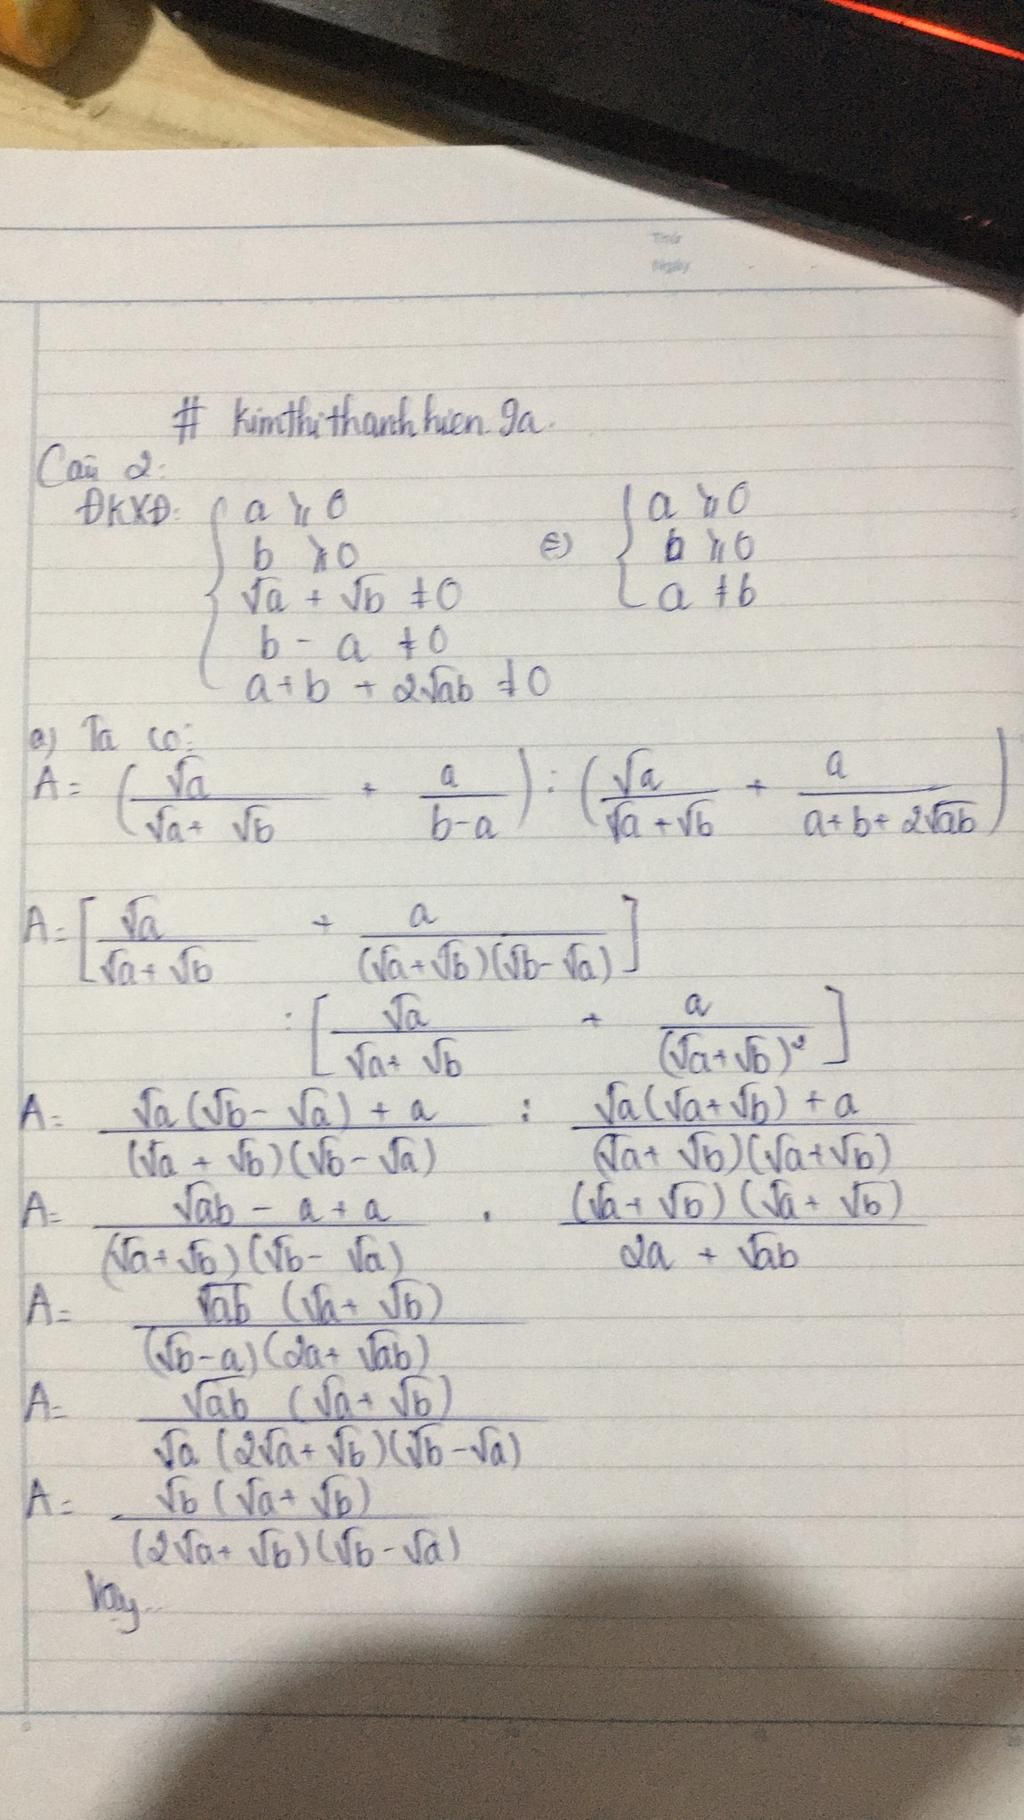 Thứ
Ngày
# kimthithanhhien.9a.
Câu 2:
ĐKXĐ: { a ≥ 0 ⇔ { a ≥ 0
b ≥ 0 b ≥ 0
√a + √b ≠ 0 a ≠ b
b - a ≠ 0
a + b + 2√ab ≠ 0
a) Ta có:
A = (√a/(√a + √b) + a/(b-a)) : (√a/(√a + √b) + a/(a + b + 2√ab))
A = [√a/(√a + √b) + a/((√a + √b)(√b - √a))]
: [√a/(√a + √b) + a/(√a + √b)²]
A = (√a(√b - √a) + a)/((√a + √b)(√b - √a)) : (√a(√a + √b) + a)/((√a + √b)(√a + √b))
A = (√ab - a + a)/((√a + √b)(√b - √a)) . ((√a + √b)(√a + √b))/(2a + √ab)
A = √ab (√a + √b)/((√b - a)(2a + √ab))
A = √ab (√a + √b)/(√a (2√a + √b)(√b - √a))
A = √b (√a + √b)/((2√a + √b)(√b - √a))
Vậy...